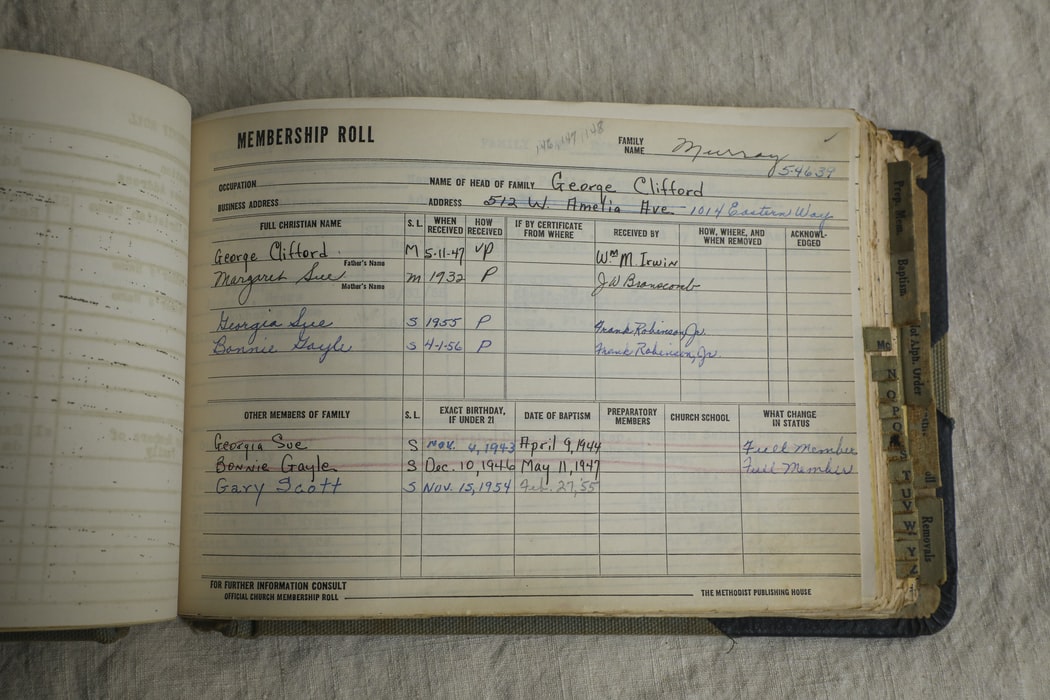 MEMBERSHIP ROLL
FAMILY NAME Murray
5-4639
OCCUPATION NAME OF HEAD OF FAMILY George Clifford
BUSINESS ADDRESS ADDRESS 512 W. Amelia Ave. 1014 Eastern Way
FULL CHRISTIAN NAME S. L. WHEN RECEIVED HOW RECEIVED IF BY CERTIFICATE FROM WHERE RECEIVED BY HOW, WHERE, AND WHEN REMOVED ACKNOWL-EDGED
George Clifford M 5-11-47 VP Wm M. Irwin
Father's Name
Margaret Sue m 1932 P J W Branscomb
Mother's Name
Georgia Sue S 1955 P Frank Robinson, Jr.
Bonnie Gayle S 4-1-56 P Frank Robinson, Jr.
OTHER MEMBERS OF FAMILY S. L. EXACT BIRTHDAY, IF UNDER 21 DATE OF BAPTISM PREPARATORY MEMBERS CHURCH SCHOOL WHAT CHANGE IN STATUS
Georgia Sue S Nov. 4, 1943 April 9, 1944 Full Member
Bonnie Gayle S Dec. 10, 1946 May 11, 1947 Full Member
Gary Scott S Nov. 15, 1954 Feb. 27, '55
FOR FURTHER INFORMATION CONSULT
OFFICIAL CHURCH MEMBERSHIP ROLL THE METHODIST PUBLISHING HOUSE
Prep. Mem.
Baptism
Alph. Order
Removals
Mc
N
O
P
S
T
U
V
W
Y
Z